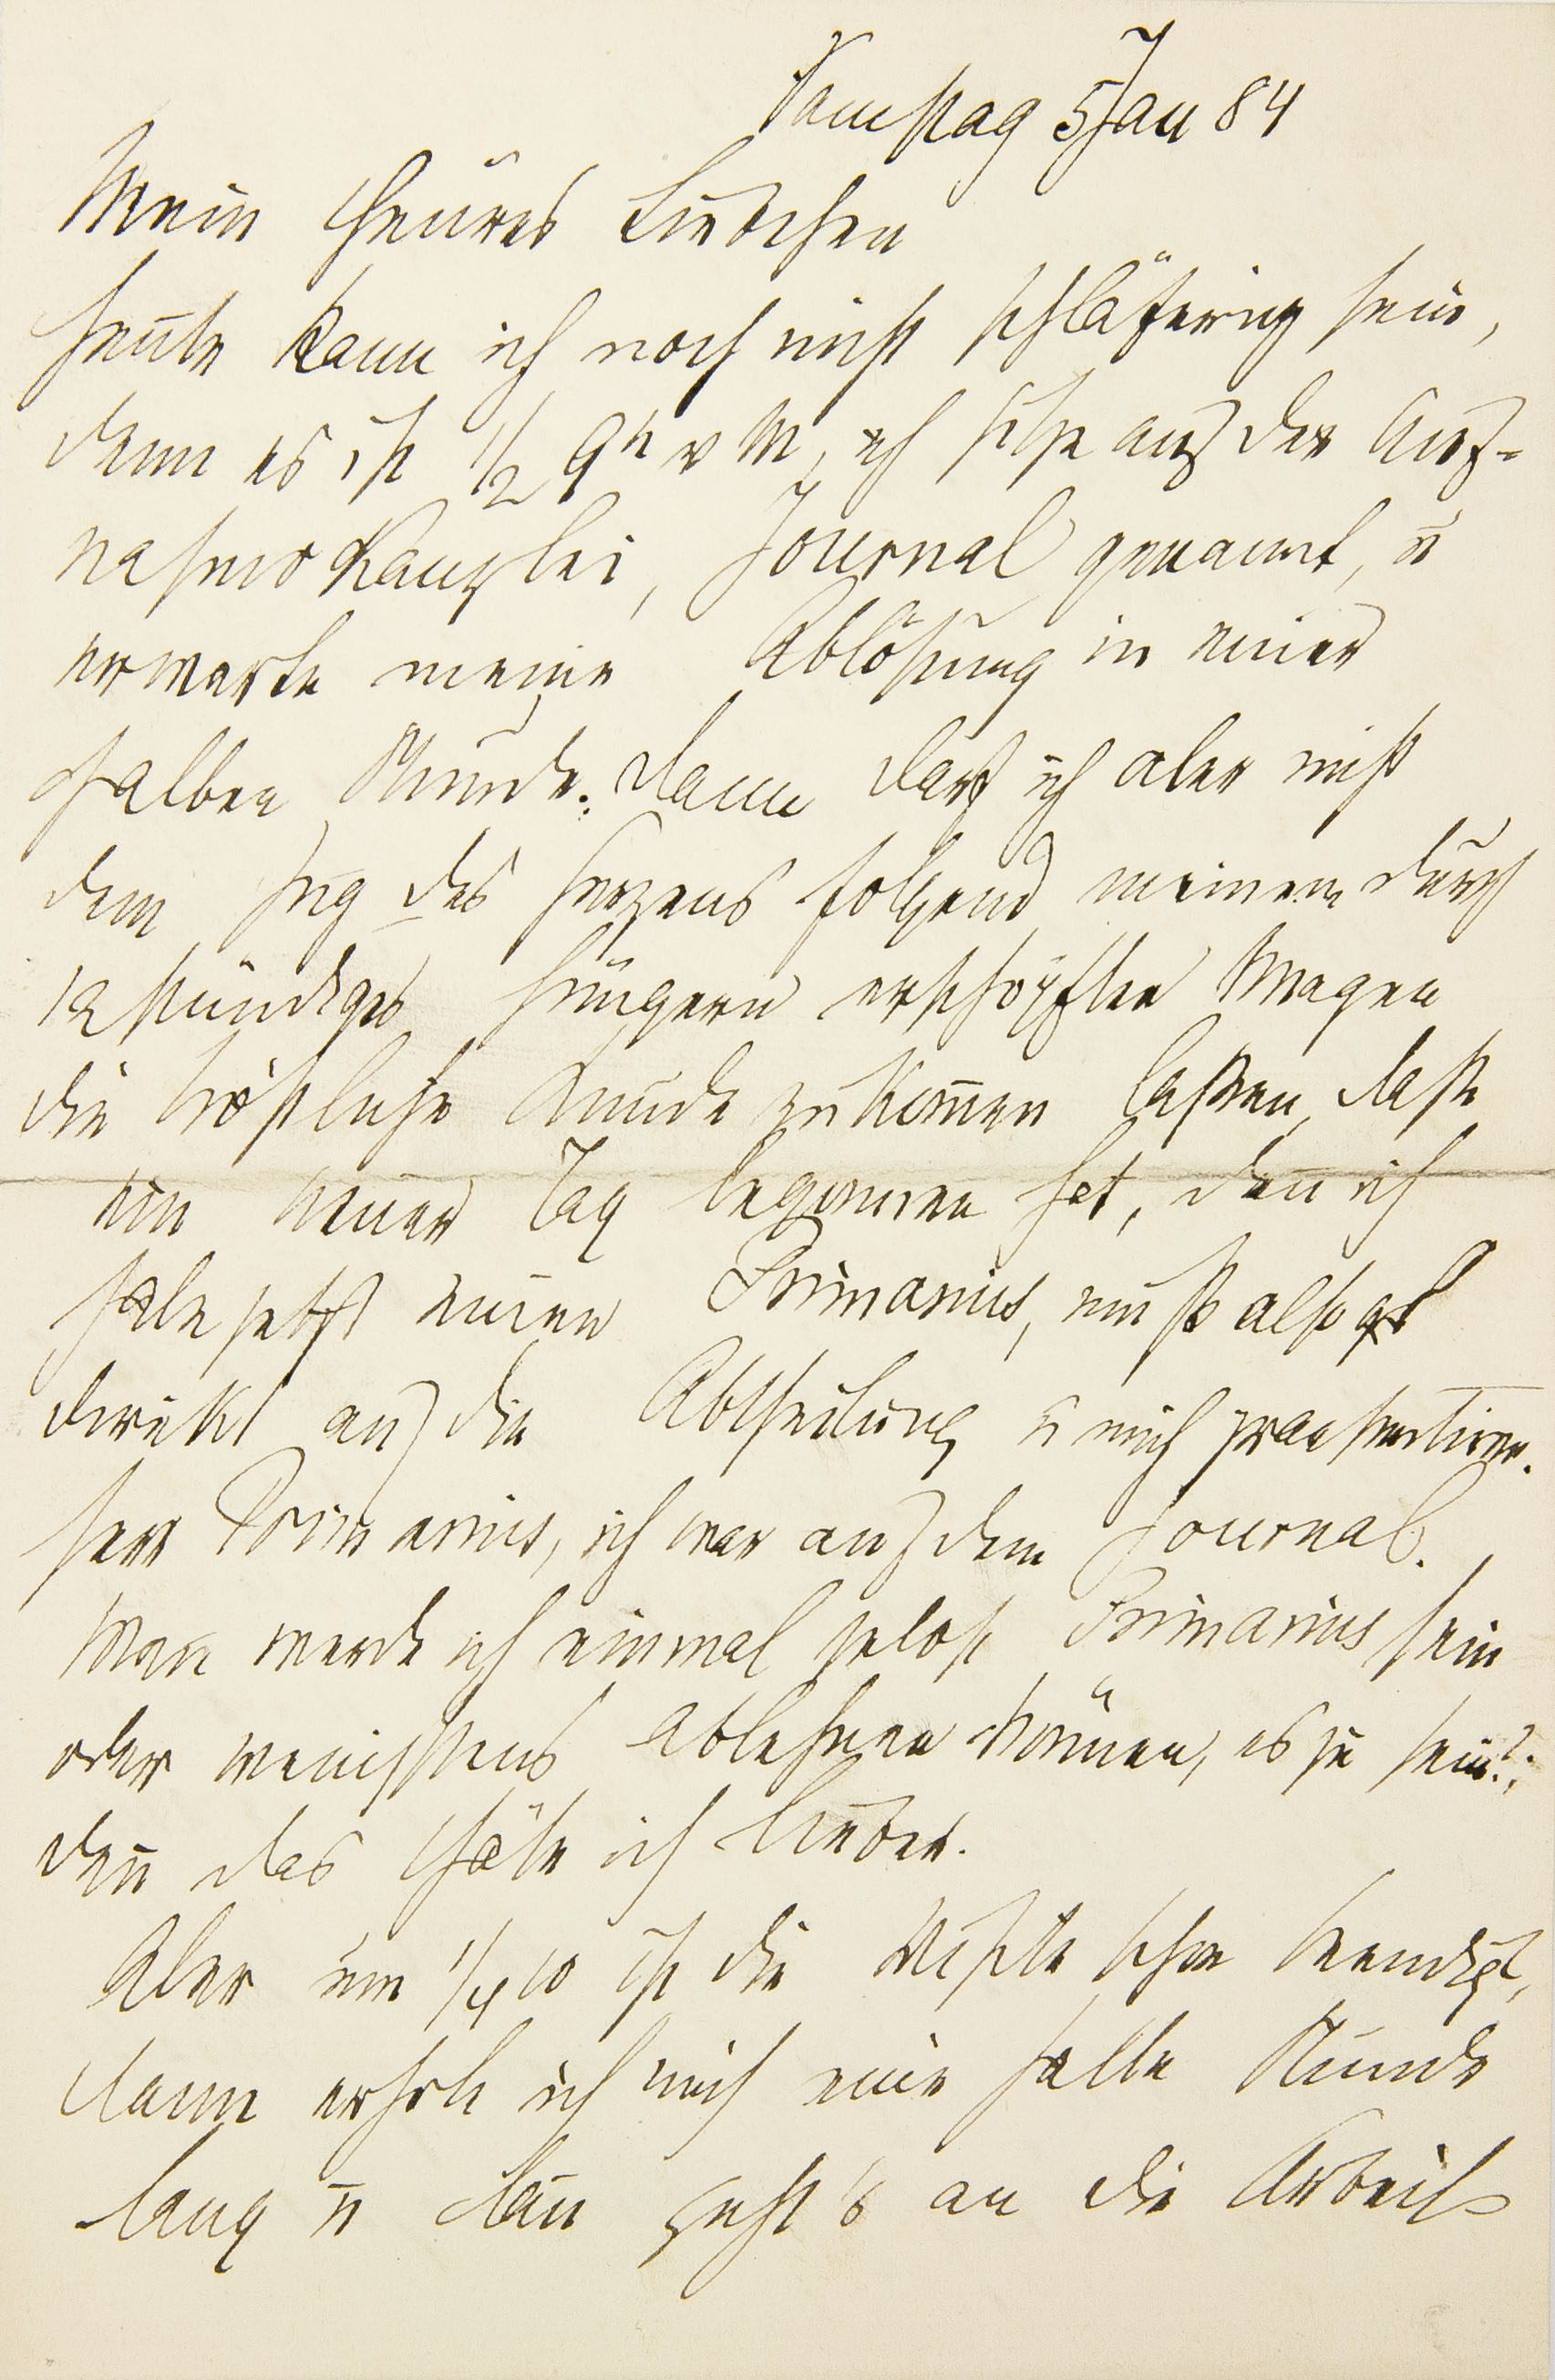 Samstag 5 Jan 84
Mein theures Liebchen
heute kann ich noch nicht schläferig sein,
denn es ist 1/2 9h v M, ich sitze auf der Auf-
nahmskanzlei, Journal genannt, u
erwarte meine Ablösung in einer
halben Stunde. Dann darf ich aber nicht
dem Zug des Herzens folgend meinem durch
12 stündiges Hungern erschöpften Magen
die tröstliche Kunde zukom̅en lassen, daß
ein neuer Tag begonnen hat, den̅ ich
habe jetzt einen Primarius, muß also
direkt auf die Abtheilung u mich praesentiren.
Herr Primarius, ich war auf dem Journal.
Wan̅ werde ich einmal selbst Primarius sein
oder wenigstens ablehnen können, es zu sein?
den̅ das thäte ich lieber.
Aber um 1/4 10 ist die Visite schon beendigt,
dann erhole ich mich eine halbe Stunde
lang u dan̅ geht's an die Arbeit